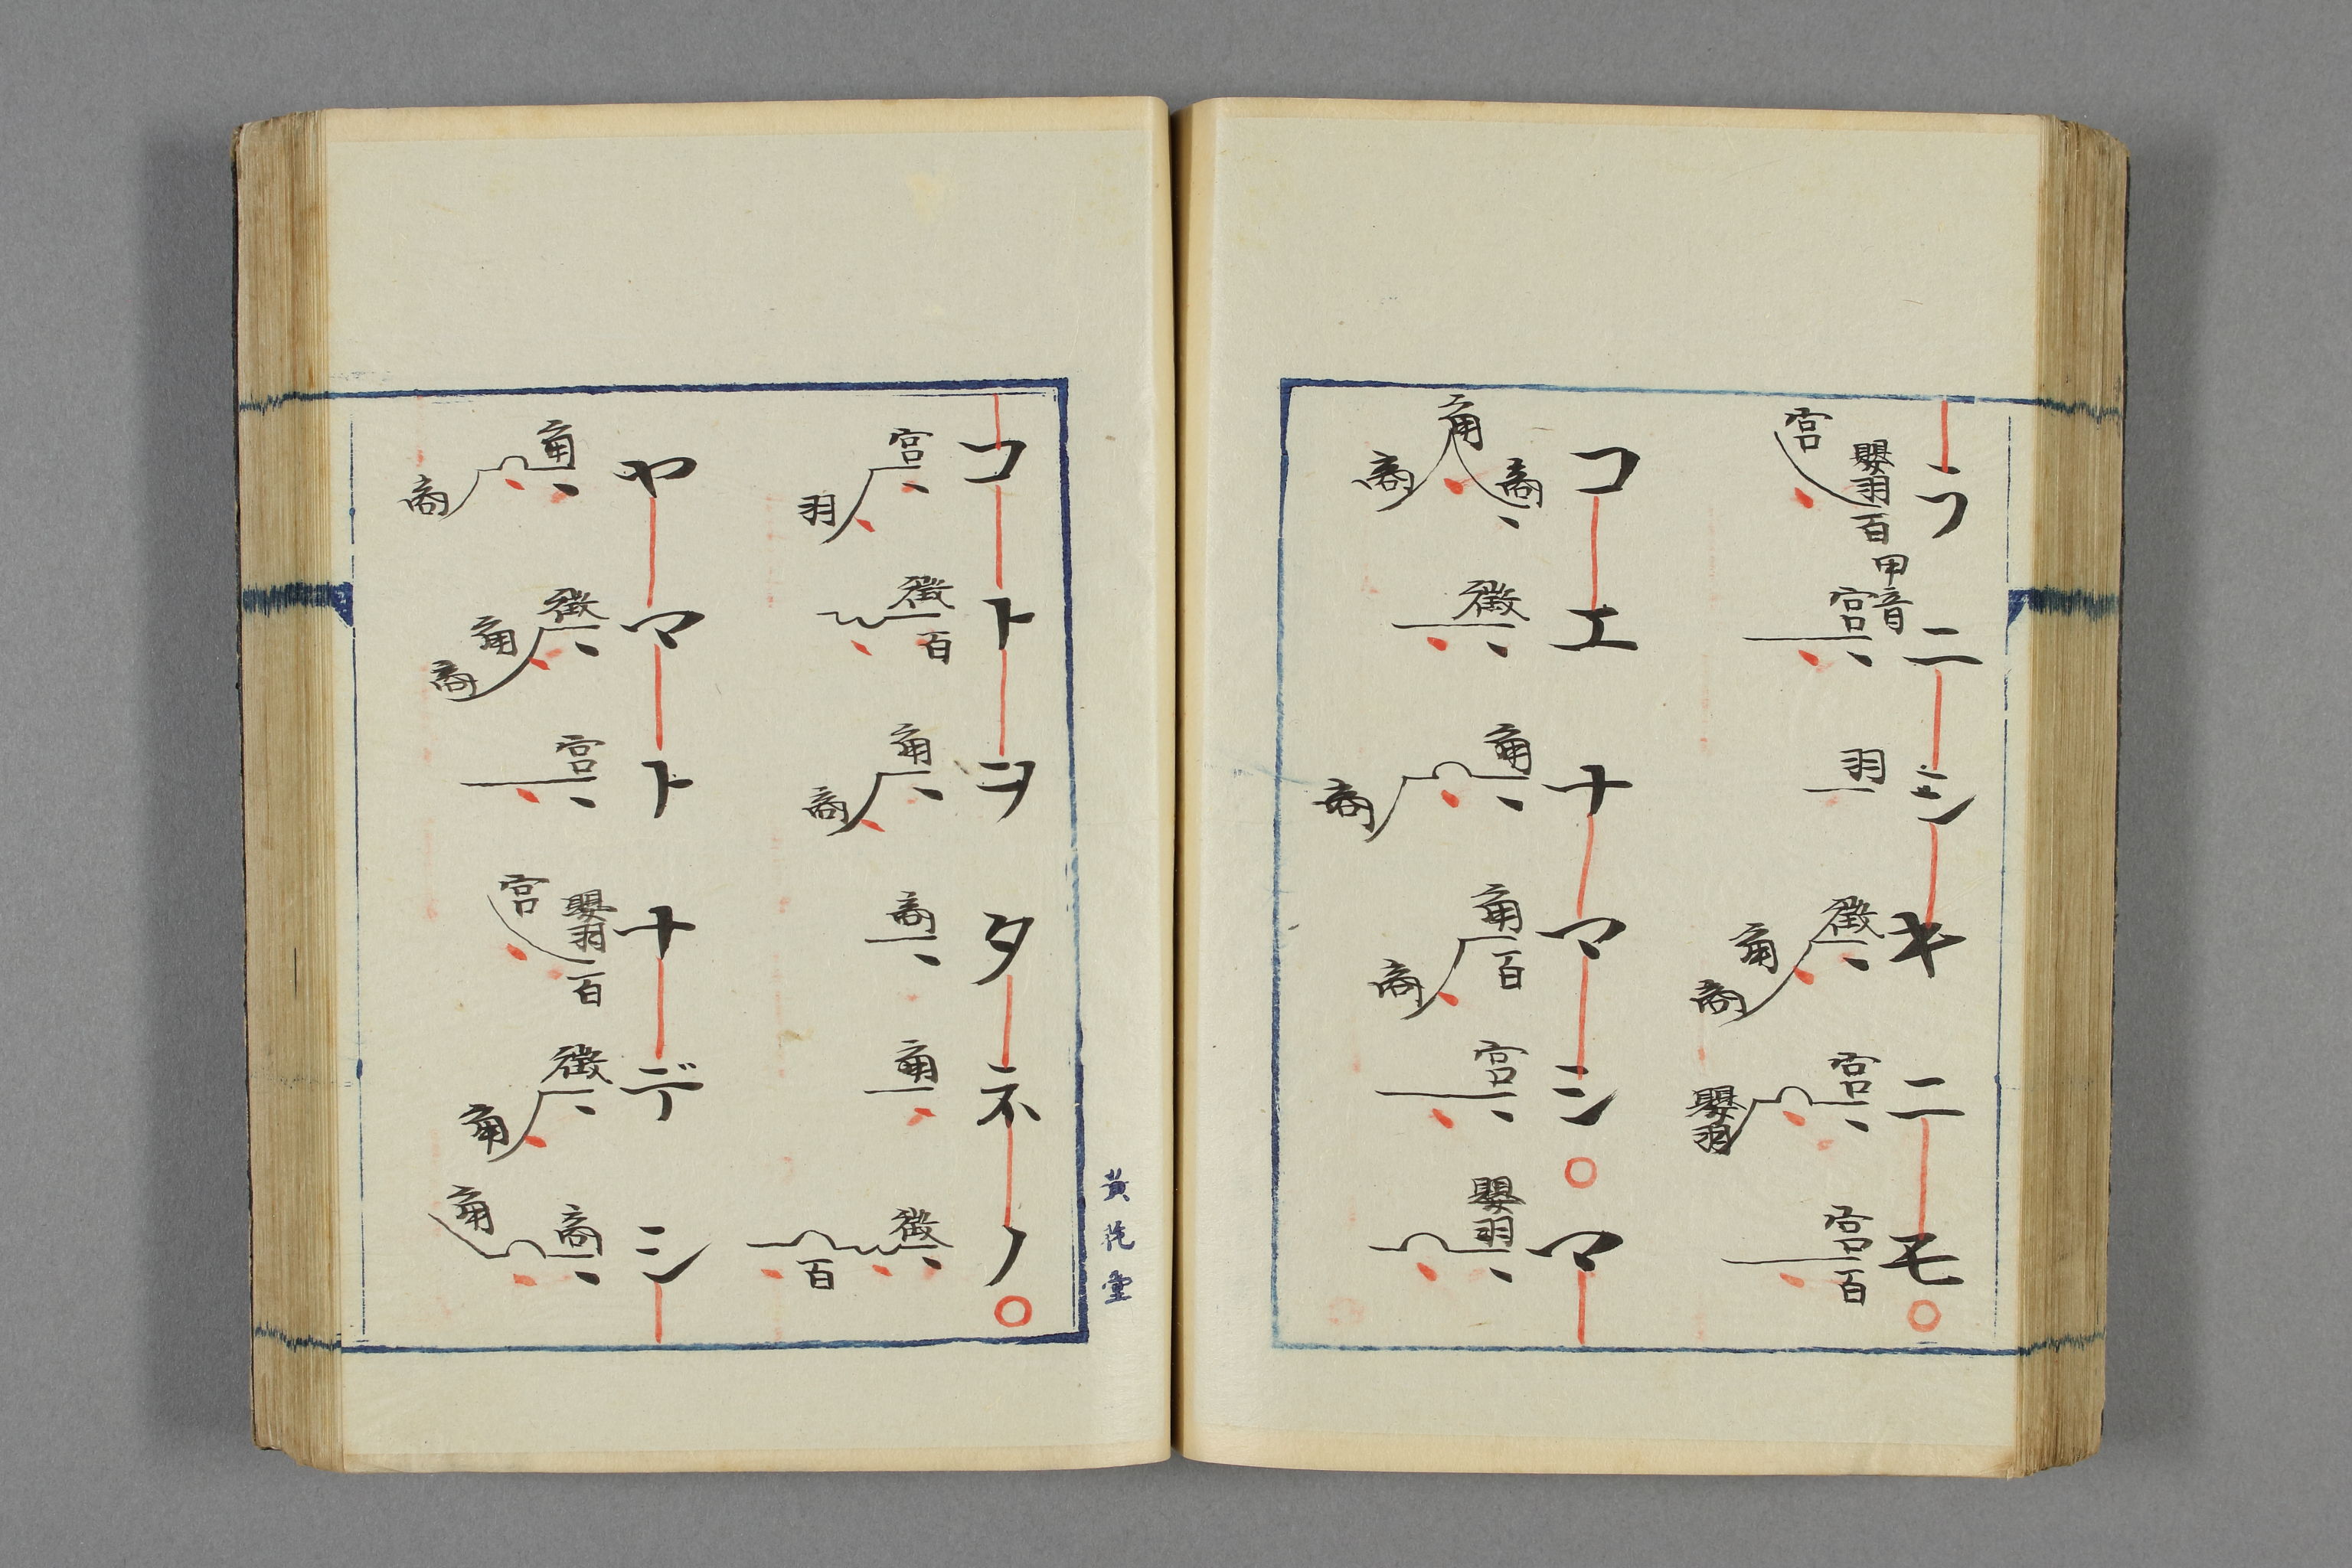 ラニシキニモ
宮 嬰羽 百 甲音 宮 羽 徴 角 商 宮 嬰羽 宮 百
コエナマシマ
商 角 商 徴 角 商 角 百 商 宮 嬰羽
コトヲタネノ
宮 羽 徴 百 角 商 商 角 徴 百
ヤマトナデシ
角 商 徴 角 商 宮 嬰羽 百 宮 徴 角 商 角